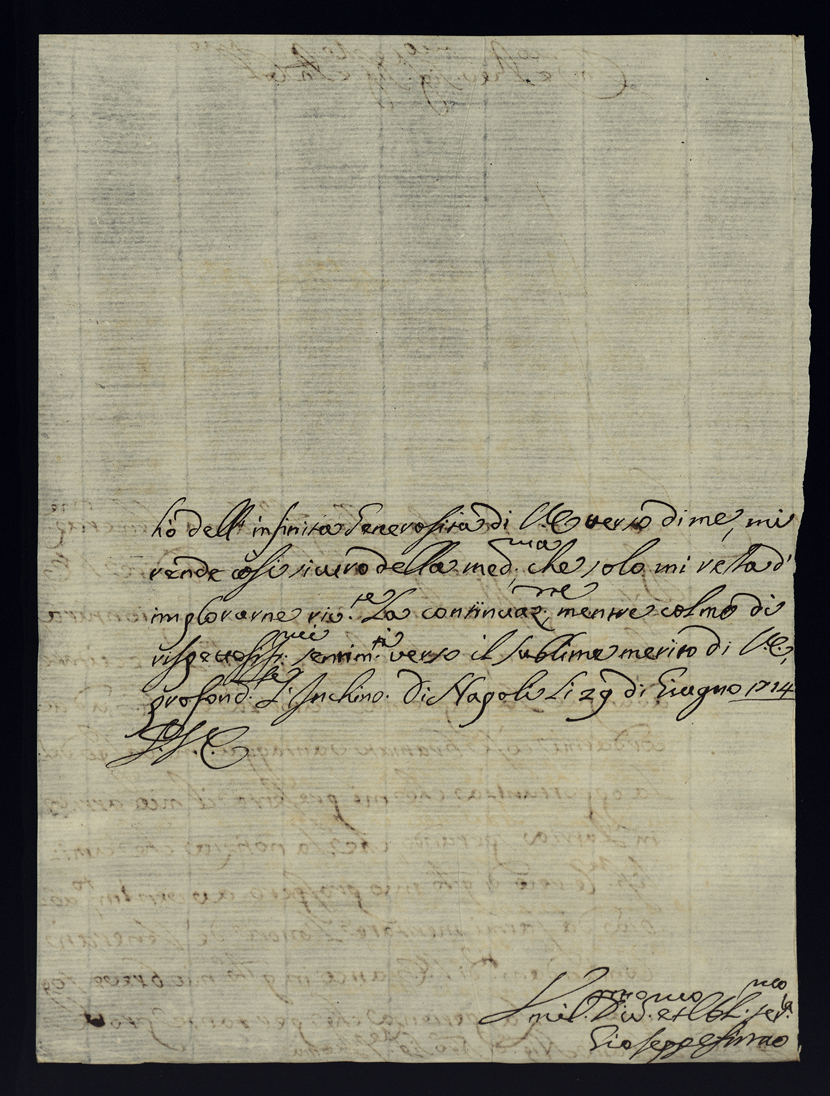 hò dell' infinita Generosità di V.E. verso di me, mi
rende così sicuro della med.ma che solo mi resta d'
implorarne riv.te La continuaz.ne mentre colmo di
rispettosiss.mi sentim.ti verso il sublime merito di V.E.,
profond.te L'Inchino. Di Napoli Li 29 di Giugno 1714
D. V. E.
Umil.mo Div.mo et Obl.mo ser.
Gioseppe